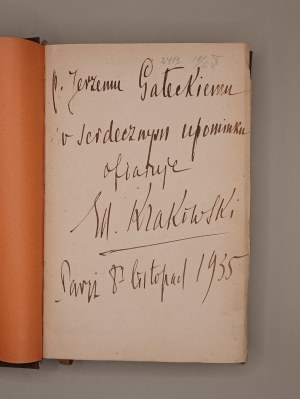 p. Jerzemu Gałeckiemu
w serdecznym upominku
ofiaruje
Ed. Krakowski
8 listopad 1935